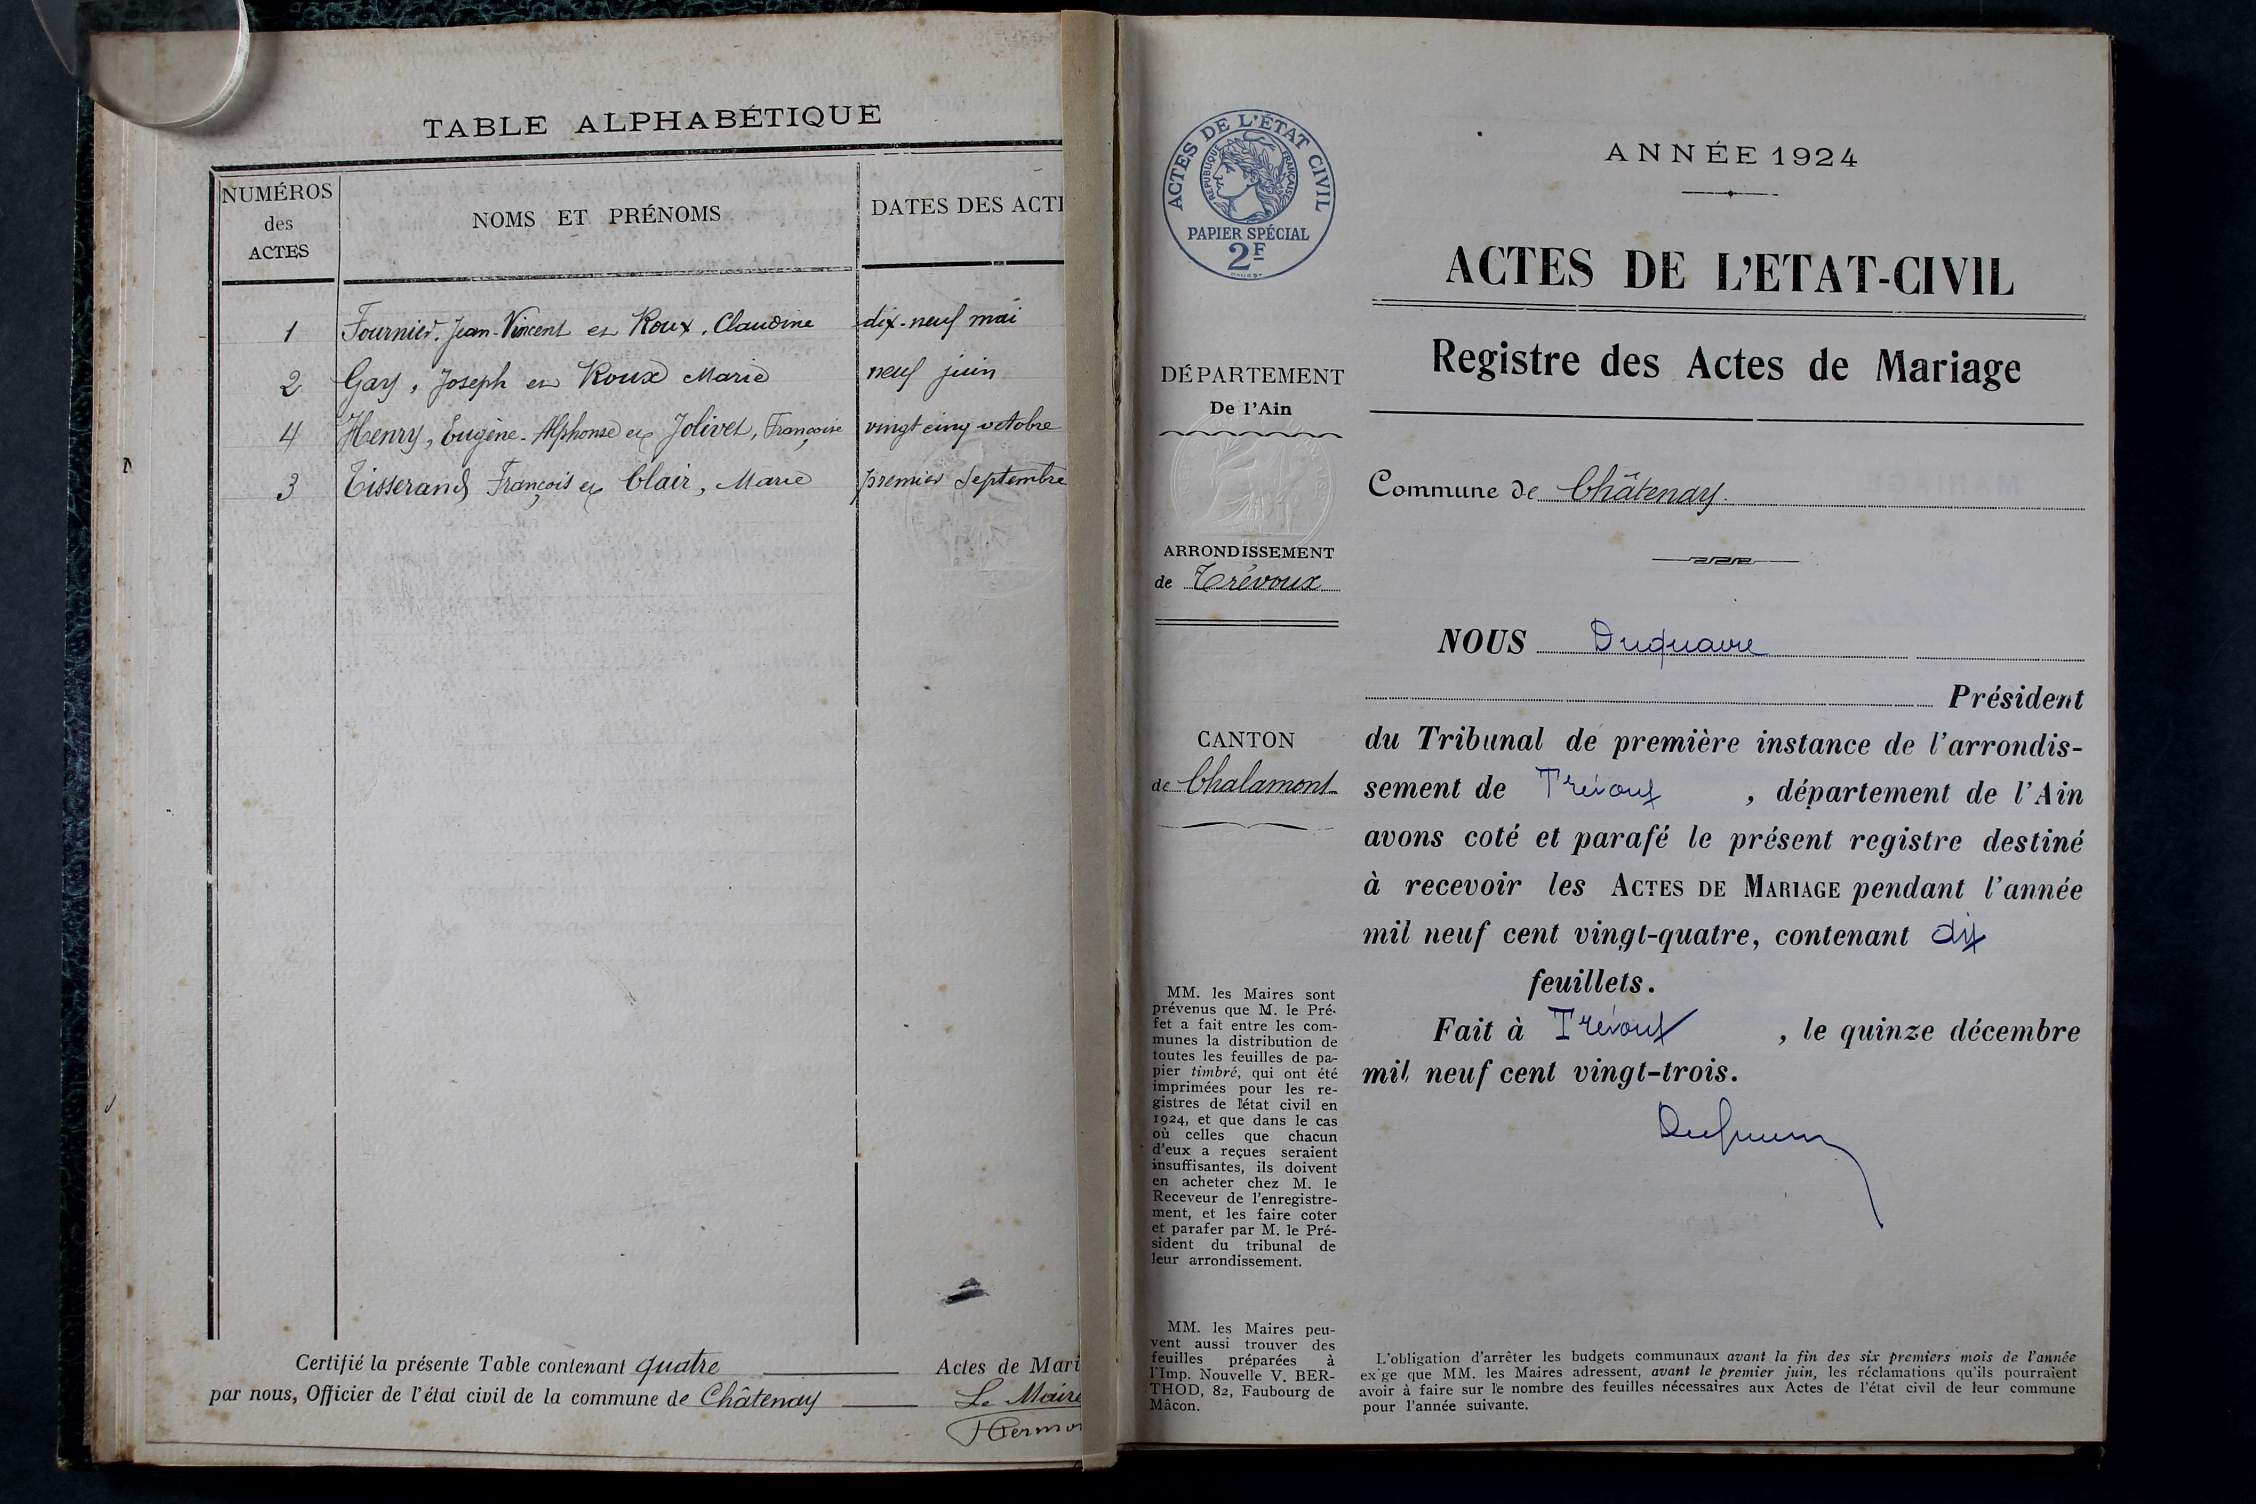 TABLE ALPHABÉTIQUE
NUMÉROS
des
ACTES
NOMS ET PRÉNOMS
DATES DES ACTE
1 Fournier. Jean-Vincent et Roux, Claudine dix-neuf mai
2 Gay, Joseph et Roux Marie neuf juin
4 Henry, Eugène-Alphonse et Jolivet, Françoise vingt cinq octobre
3 Tisserand François et Clair, Marie premier Septembre
Certifié la présente Table contenant quatre Actes de Mari
par nous, Officier de l'état civil de la commune de Châtenay Le Maire
ACTES DE L'ÉTAT CIVIL
RÉPUBLIQUE FRANÇAISE
PAPIER SPÉCIAL
2F
DÉPARTEMENT
De l'Ain
ARRONDISSEMENT
de Trévoux
CANTON
de Chalamont
MM. les Maires sont
prévenus que M. le Pré-
fet a fait entre les com-
munes la distribution de
toutes les feuilles de pa-
pier timbré, qui ont été
imprimées pour les re-
gistres de l'état civil en
1924, et que dans le cas
où celles que chacun
d'eux a reçues seraient
insuffisantes, ils doivent
en acheter chez M. le
Receveur de l'enregistre-
ment, et les faire coter
et parafer par M. le Pré-
sident du tribunal de
leur arrondissement.
MM. les Maires peu-
vent aussi trouver des
feuilles préparées à
l'Imp. Nouvelle V. BER-
THOD, 82, Faubourg de
Mâcon.
ANNÉE 1924
ACTES DE L'ETAT-CIVIL
Registre des Actes de Mariage
Commune de Châtenay.
NOUS Duquaire
Président
du Tribunal de première instance de l'arrondis-
sement de Trévoux, département de l'Ain
avons coté et parafé le présent registre destiné
à recevoir les ACTES DE MARIAGE pendant l'année
mil neuf cent vingt-quatre, contenant dix
feuillets.
Fait à Trévoux, le quinze décembre
mil neuf cent vingt-trois.
L'obligation d'arrêter les budgets communaux avant la fin des six premiers mois de l'année
ex ge que MM. les Maires adressent, avant le premier juin, les réclamations qu'ils pourraient
avoir à faire sur le nombre des feuilles nécessaires aux Actes de l'état civil de leur commune
pour l'année suivante.